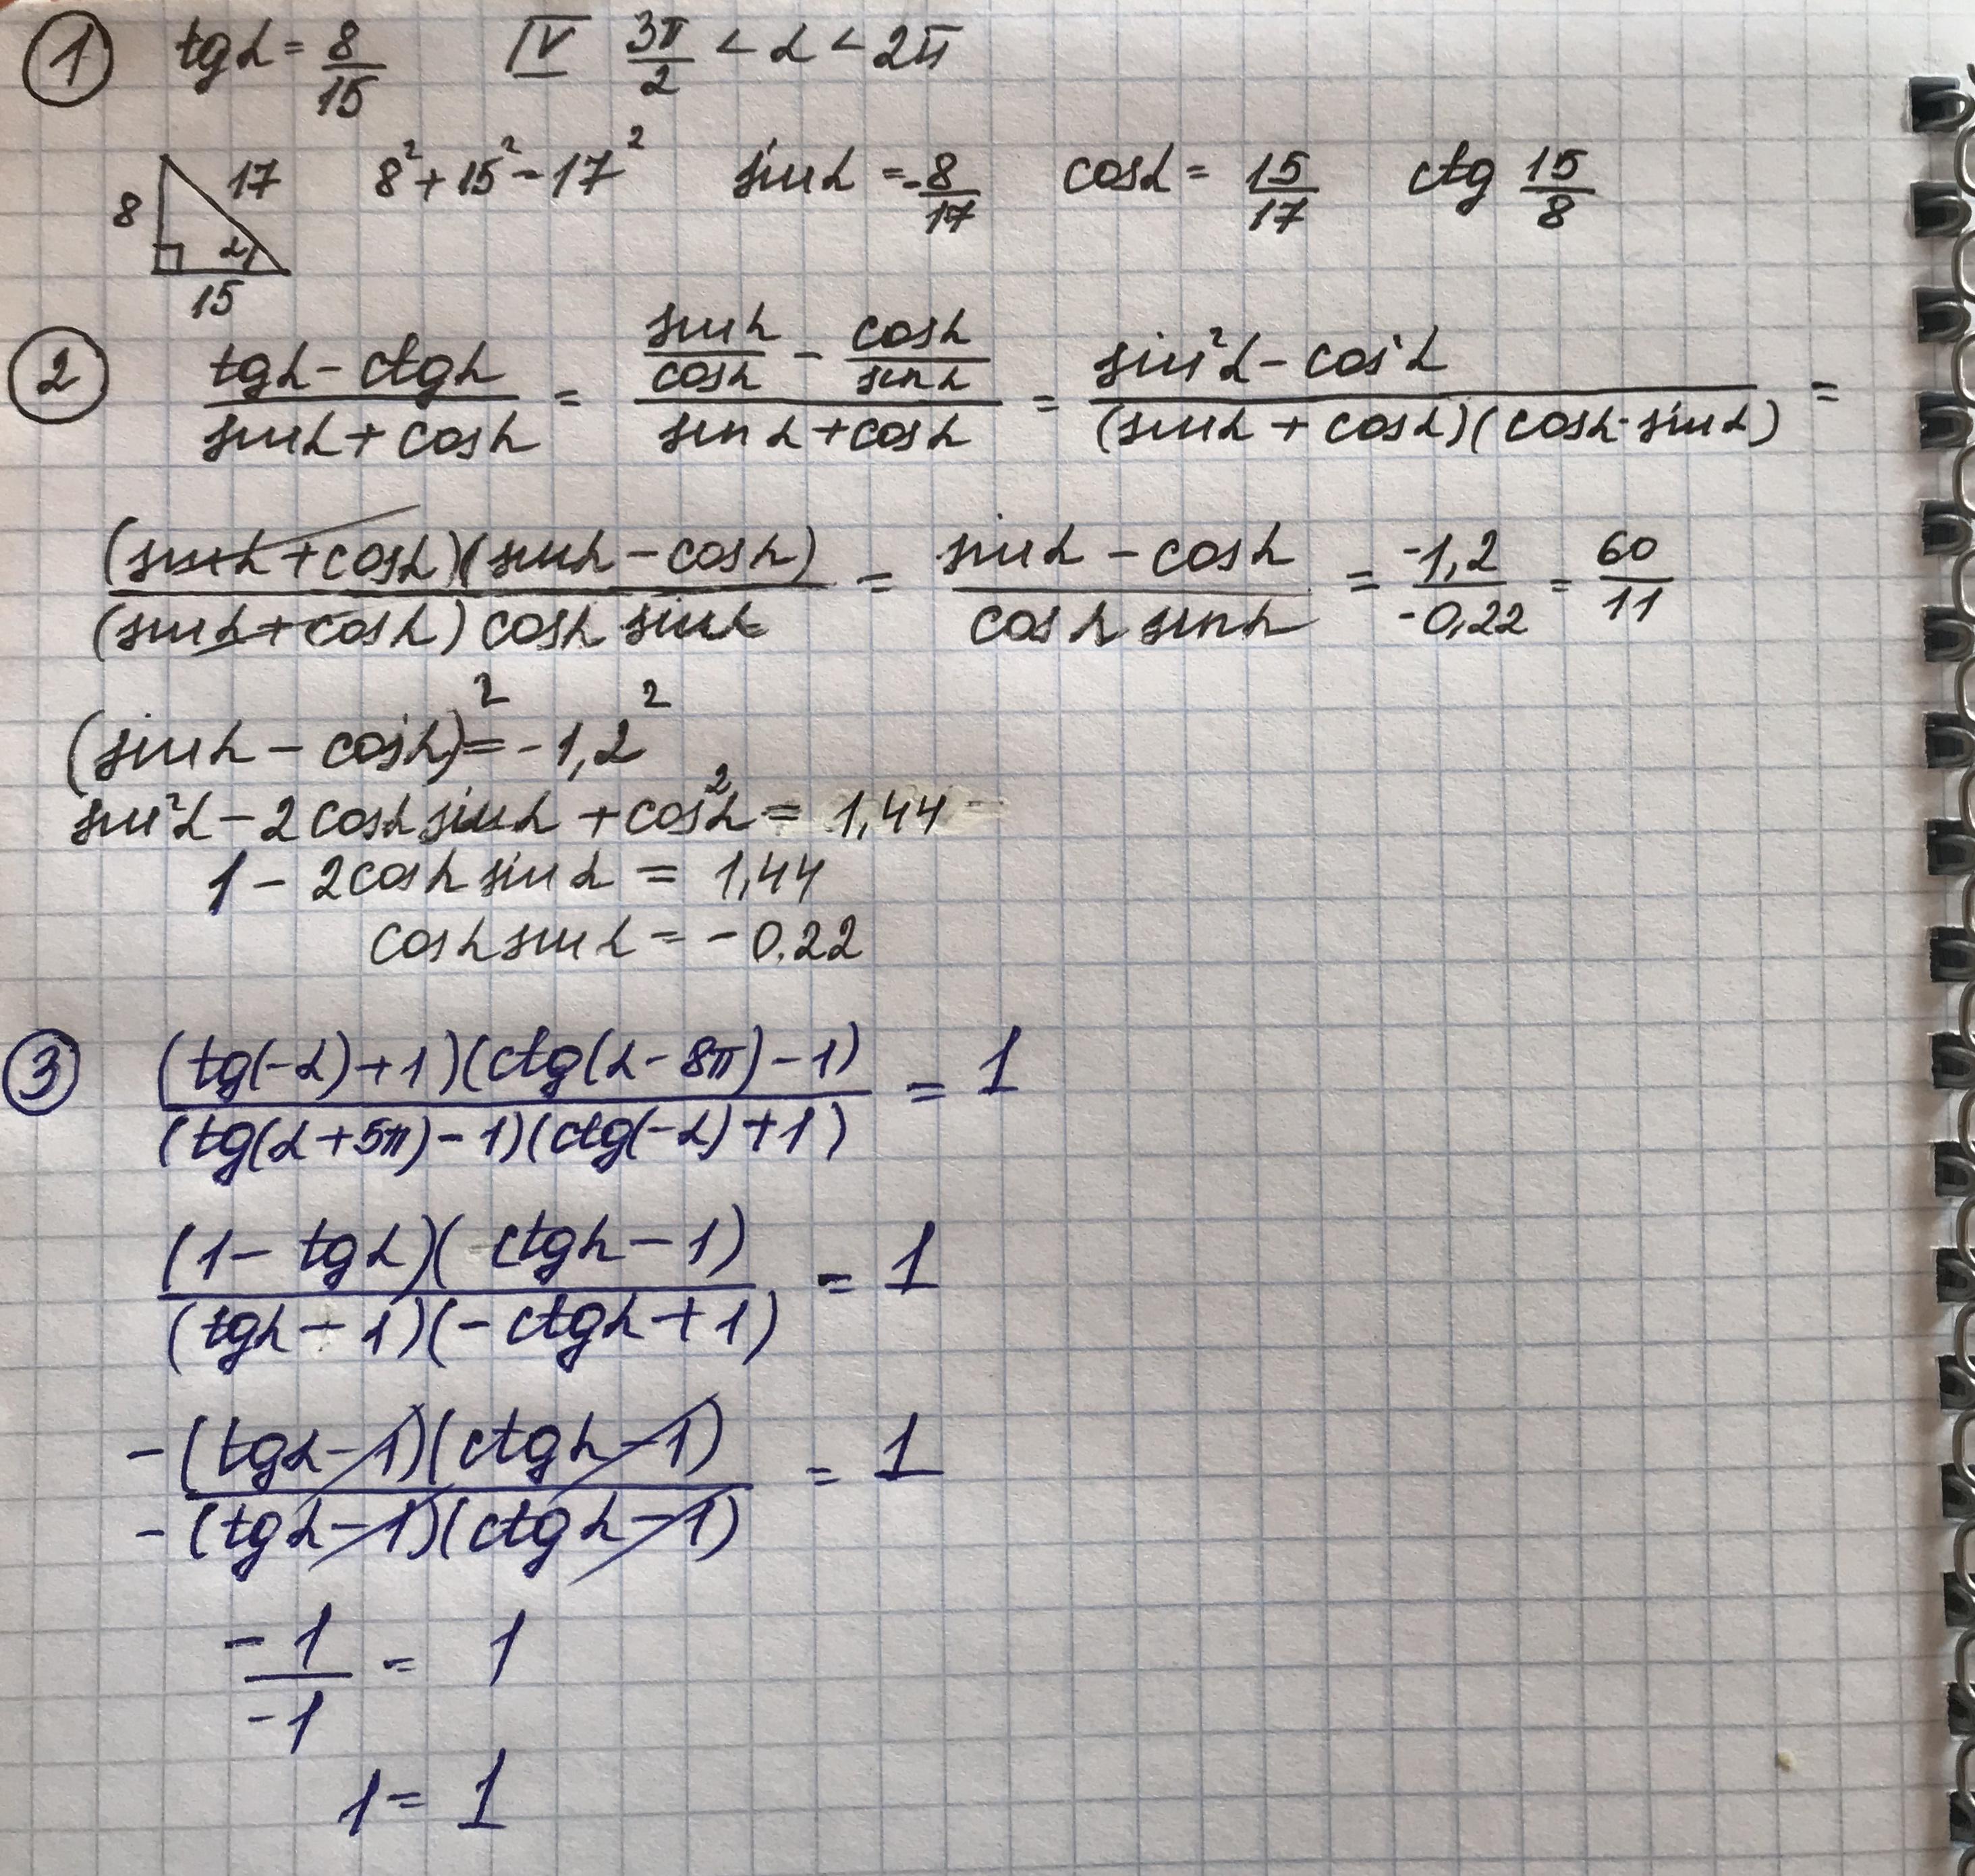 ① tgα = 8/15 IV 3π/2 < α < 2π
8 17 15 α 8² + 15² - 17² sinα = -8/17 cosα = 15/17 ctg 15/8
② (tgα - ctgα)/(sinα + cosα) = (sinα/cosα - cosα/sinα)/(sinα + cosα) = (sin²α - cos²α)/((sinα + cosα)(cosα·sinα)) =
((sinα + cosα)(sinα - cosα))/((sinα + cosα) cosα sinα) = (sinα - cosα)/(cosα sinα) = -1,2/-0,22 = 60/11
(sinα - cosα)² = -1,2²
sin²α - 2cosα sinα + cos²α = 1,44
1 - 2cosα sinα = 1,44
cosα sinα = -0.22
③ ((tg(-α) + 1)(ctg(α - 8π) - 1))/((tg(α + 5π) - 1)(ctg(-α) + 1)) = 1
((1 - tgα)(ctgα - 1))/((tgα - 1)(-ctgα + 1)) = 1
-(tgα - 1)(ctgα - 1)/-(tgα - 1)(ctgα - 1) = 1
-1/-1 = 1
1 = 1